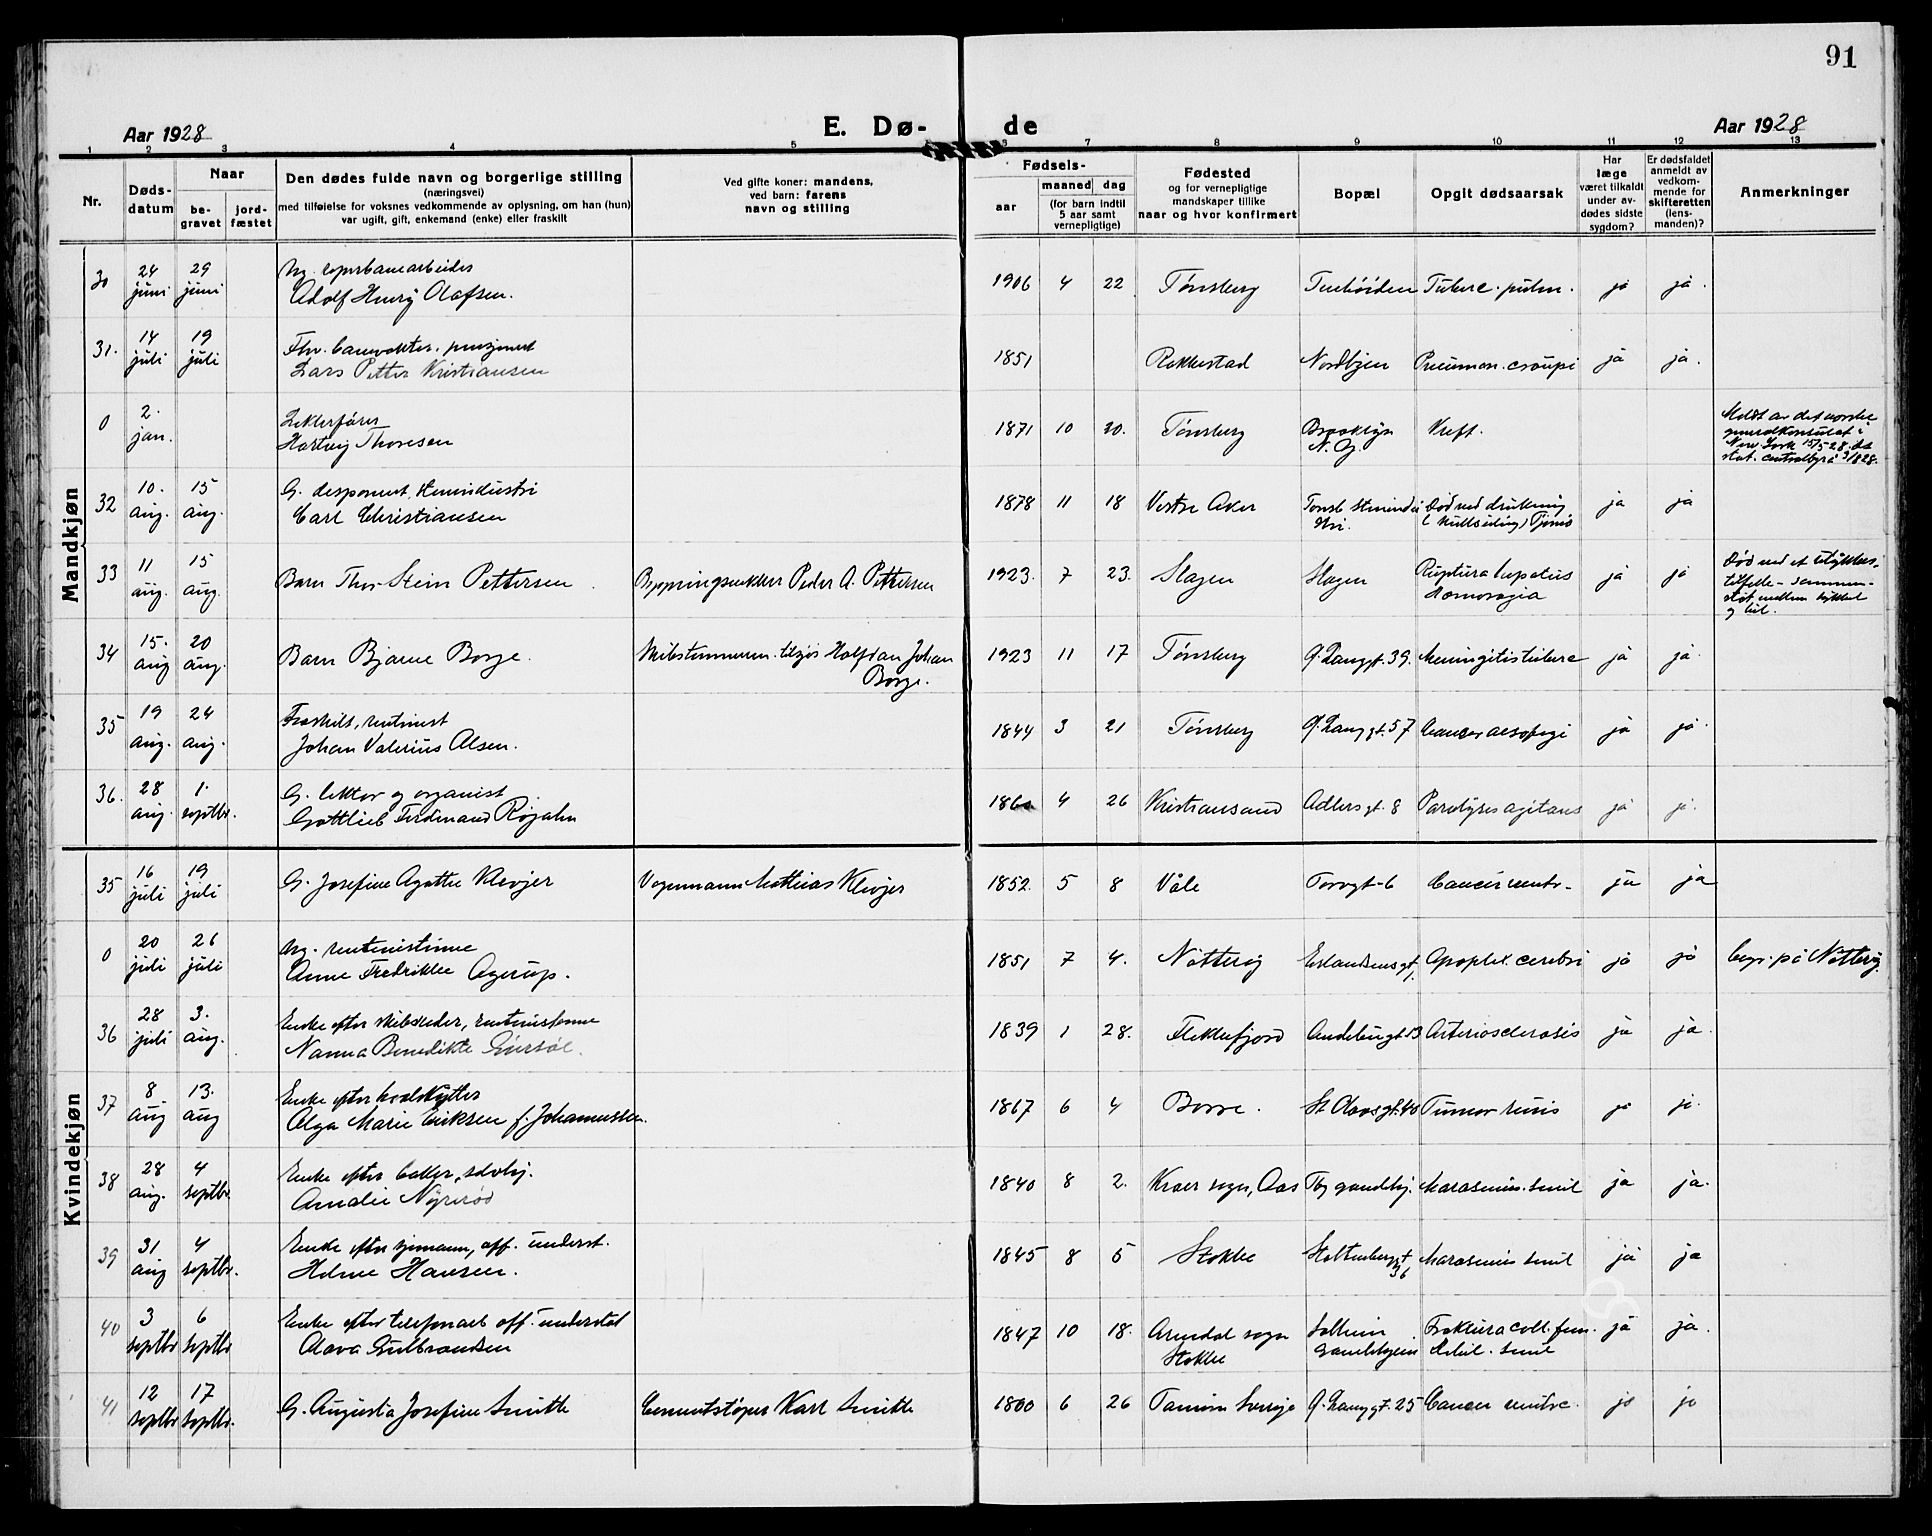 91
Aar 1928
E. Dø-
de
Aar 1928
1 2 3 4 5 6 7 8 9 10 11 12 13
Nr.
Døds-
datum
Naar
be-
gravet
jord-
fæstet
Den dødes fulde navn og borgerlige stilling
(næringsvei)
med tilføielse for voksnes vedkommende av oplysning, om han (hun)
var ugift, gift, enkemand (enke) eller fraskilt
Ved gifte koner: mandens,
ved barn: farens
navn og stilling
Fødsels-
aar
maaned
dag
(for barn indtil
5 aar samt
vernepligtige)
Fødested
og for vernepligtige
mandskaper tillike
naar og hvor konfirmert
Bopæl
Opgit dødsaarsak
Har
læge
været tilkaldt
under av-
dødes sidste
sygdom?
Er dødsfaldet
anmeldt av
vedkom-
mende for
skifteretten
(lens-
manden)?
Anmerkninger
Mandkjøn
30 24 juni 29 juni
Adolf Henry Olafsen.
1906 4 22 Tønsberg Tuberc. pulm. ja ja.
31. 14 juli 19 juli
Lars Petter Kristiansen
1851 Rakkestad Nordbyen Pneumon. croupi ja ja.
0 2. jan.
Hartvig Thoresen
1871 10 20. Tønsberg Brooklyn N.Y. Kreft.
Meldt av det norske
generalkonsulat i
New York 15/5 28.
32 10. aug. 15 aug.
G. disponent,
Carl Christiansen
1878 11 18 Vestre Aker ja ja
33 11 aug. 15 aug.
Barn Thor Stein Pettersen Peder A. Pettersen
1923. 7 23. Slagen Slagen Ruptura hepatis ja ja
Død ved et ulykkes-
tilfelle - sammen-
støt mellem sykkel
og bil.
34 15. aug 20 aug.
Barn Bjarne Borge. Halfdan Johan
Borge.
1923 11 17 Tønsberg Ø. Langgt. 39. Meningitis tuberc ja ja.
35 19 aug. 24 aug.
Fraskilt, rentenist
Johan Valerius Olsen.
1844 3 21 Tønsberg Ø. Langgt. 57 Cancer aesofagi ja ja.
36. 28 aug. 1. septbr.
G. lektor og organist
Gottlieb Ferdinand Rojahn
4 26 Kristiansand Adlersgt. 8 Paralysis agitans ja ja.
Kvindekjøn
35 16 juli 19 juli
G. Josefine Agathe Klevjer Vognmann Mathias Klevjer
1852. 5 8 Våle Torvgt-6 Cancer ventr. ja ja
0 20 juli 26 juli
Ug. rentenistinne
Anne Fredrikke Agerup.
1851 7 4. Nøtterøy Apoplex. cerebri ja ja Begr. på Nøtterøy.
36 28 juli 3. aug.
Enke efter skibsreder, rentenistinne
Nanna Benedikte
1839 1 28. Flekkefjord Arteriosclerosis ja ja.
37 8 aug 13. aug
Enke efter hvalskytter
Olga Marie Eriksen f. Johannessen.
1867 6 4 Borre. St Olavsgt. 40 Tumor renis ja ja.
38 28 aug. 4 septbr.
Amalie Nyrerød
1840 8 2. Kroer sogn, Aas Marasmus senil ja ja.
39 31 aug 4 septbr.
Enke efter sjømann, off. underst.
Helene Hansen.
1845 8 5 Stokke Stoltenbergsgt 36 Marasmus senil ja ja
40 3 septbr 6 septbr
Olava Gulbrandsen
1847 10 18. Arendal sogn
Stokke
Solheim
Gamlehjem
Fraktura coll. fem.
Debil. senil ja ja.
41 12 septbr 17 septbr.
G. Augusta Josefine Smith Cementstøper Karl Smith
1860 6 26 Tanum Sverige Ø. Langgt. 25 Cancer ventric. ja ja